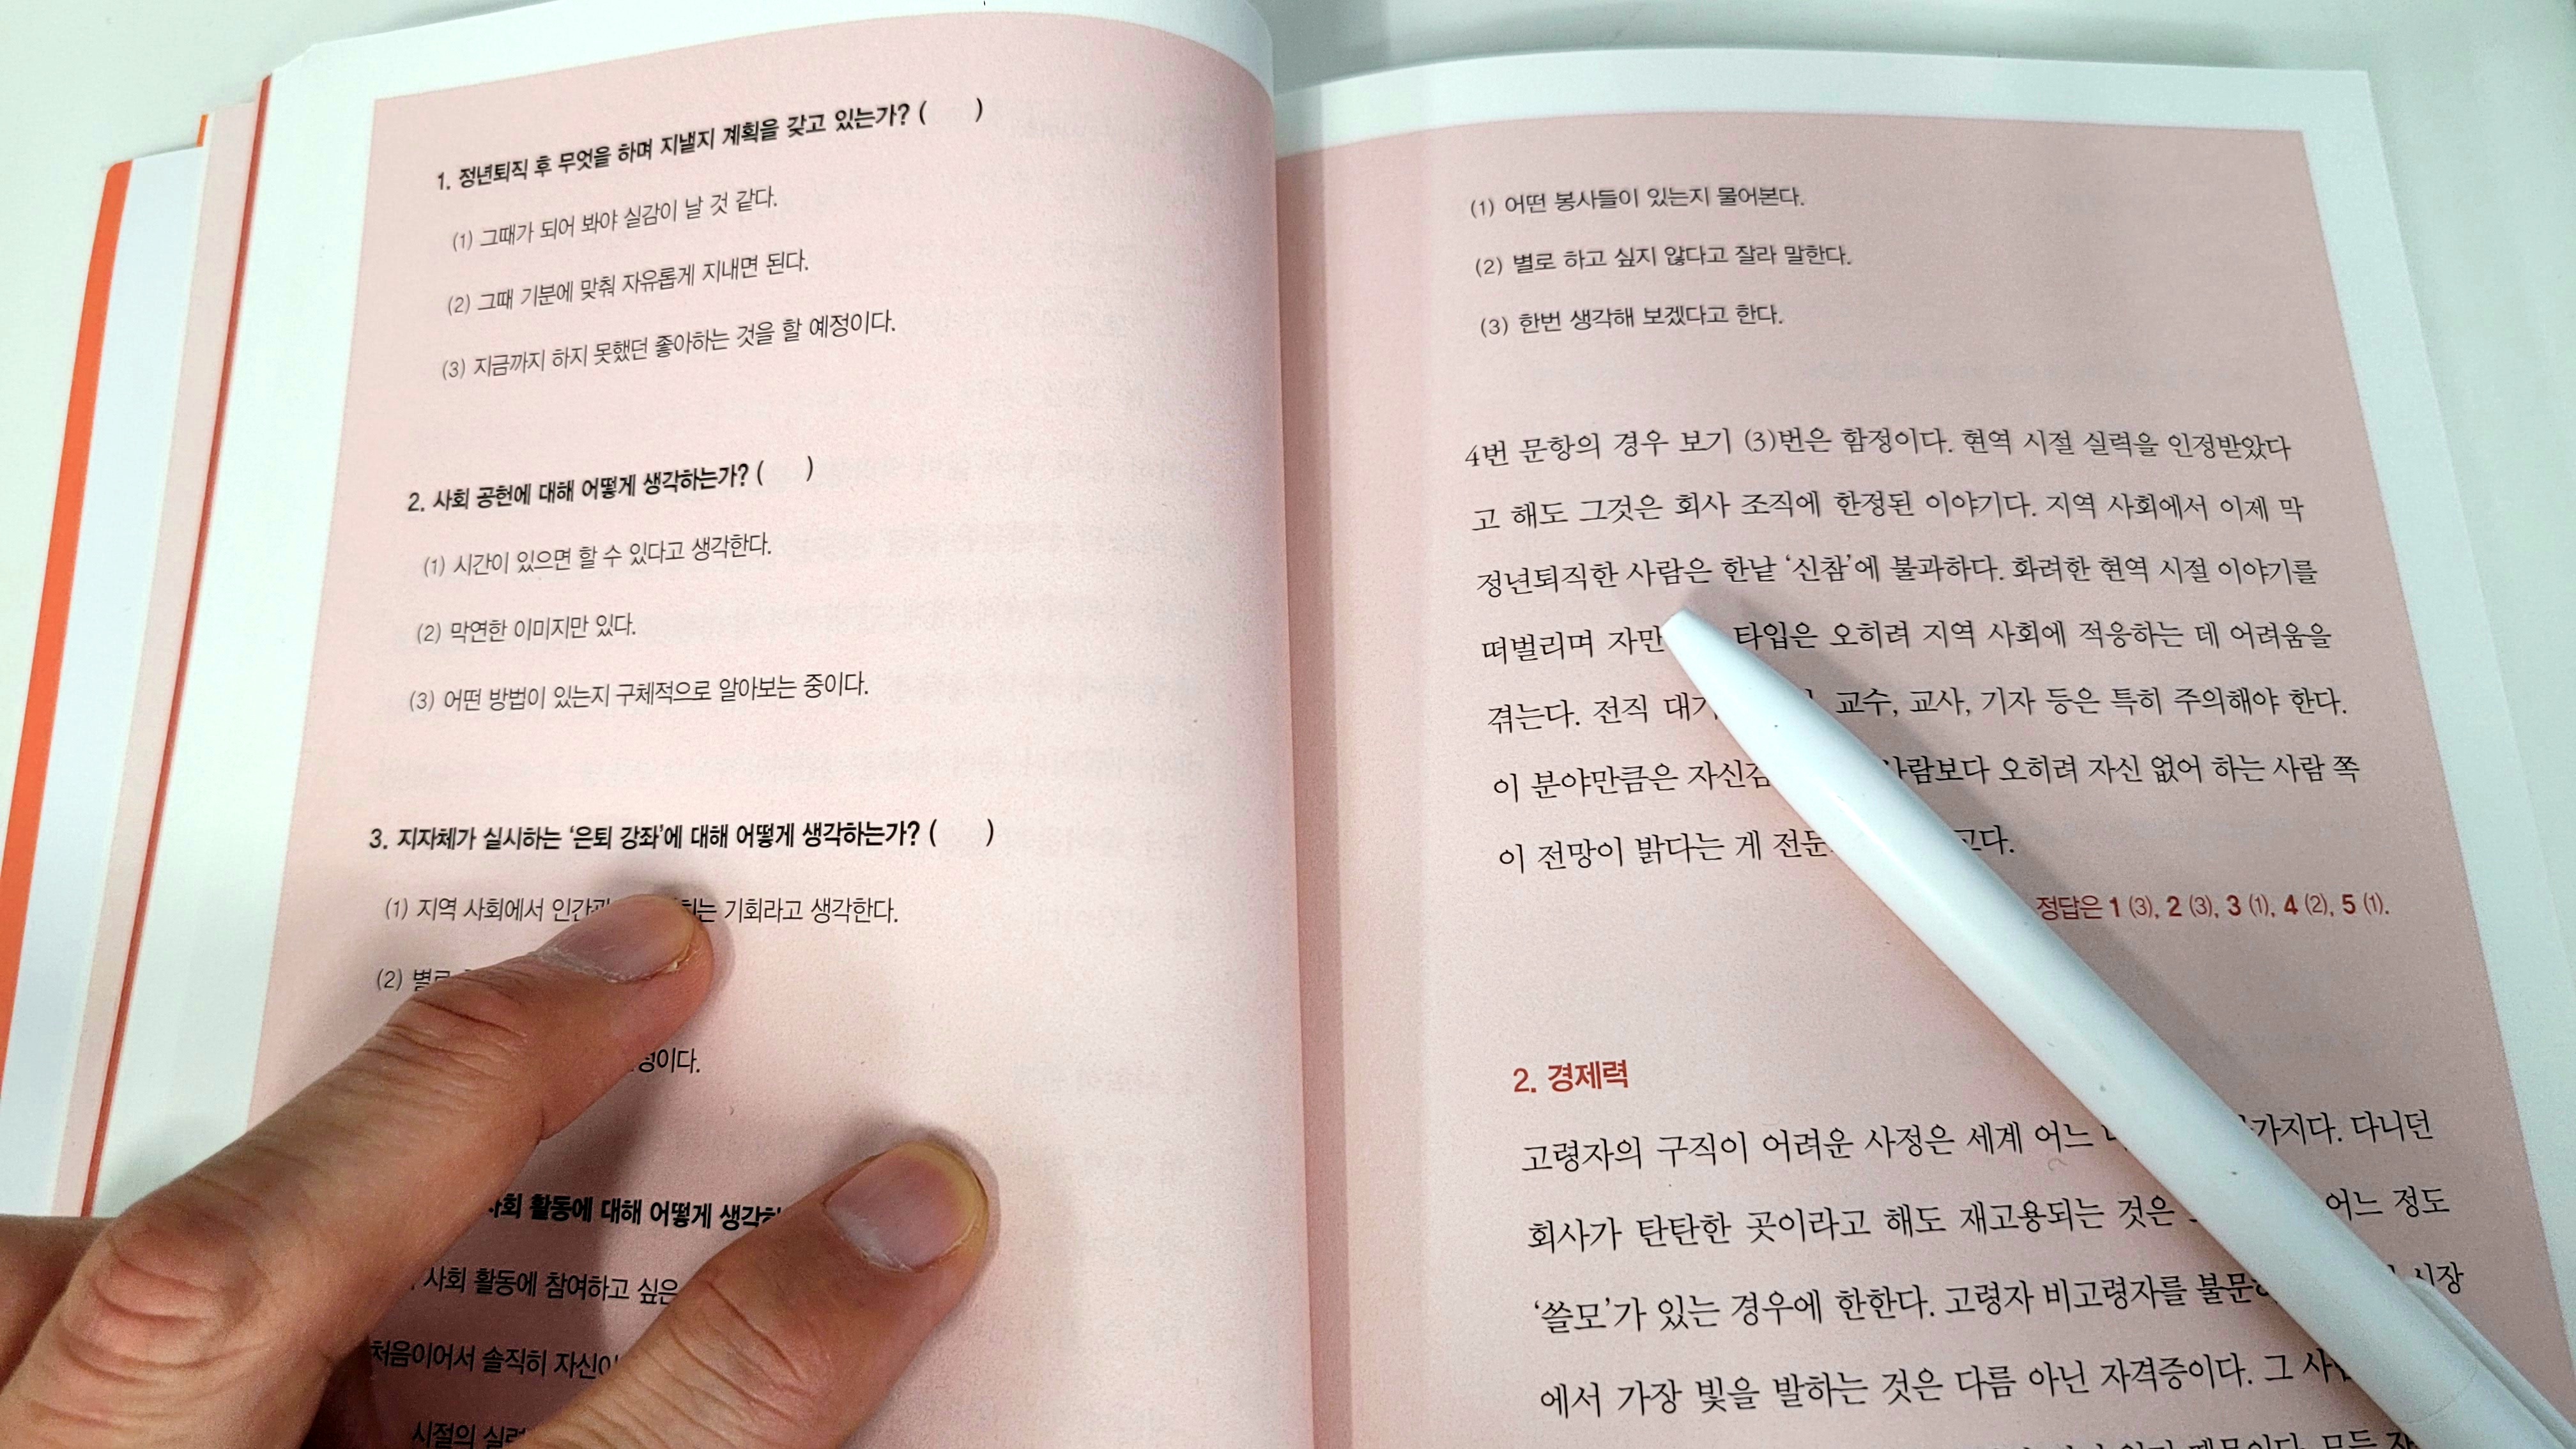 1. 정년퇴직 후 무엇을 하며 지낼지 계획을 갖고 있는가? ( )
(1) 그때가 되어 봐야 실감이 날 것 같다.
(2) 그때 기분에 맞춰 자유롭게 지내면 된다.
(3) 지금까지 하지 못했던 좋아하는 것을 할 예정이다.
2. 사회 공헌에 대해 어떻게 생각하는가? ( )
(1) 시간이 있으면 할 수 있다고 생각한다.
(2) 막연한 이미지만 있다.
(3) 어떤 방법이 있는지 구체적으로 알아보는 중이다.
3. 지자체가 실시하는 ‘은퇴 강좌’에 대해 어떻게 생각하는가? ( )
(1) 지역 사회에서 기회라고 생각한다.
(2)
활동에 대해 어떻게
사회 활동에 참여하고 싶은
처음이어서 솔직히
시절의
(1) 어떤 봉사들이 있는지 물어본다.
(2) 별로 하고 싶지 않다고 잘라 말한다.
(3) 한번 생각해 보겠다고 한다.
4번 문항의 경우 보기 (3)번은 함정이다. 현역 시절 실력을 인정받았다
고 해도 그것은 회사 조직에 한정된 이야기다. 지역 사회에서 이제 막
정년퇴직한 사람은 한낱 ‘신참’에 불과하다. 화려한 현역 시절 이야기를
떠벌리며 타입은 오히려 지역 사회에 적응하는 데 어려움을
겪는다. 전직 교수, 교사, 기자 등은 특히 주의해야 한다.
이 분야만큼은 오히려 자신 없어 하는 사람 쪽
이 전망이 밝다는 게
정답은 1 (3), 2 (3), 3 (1), 4 (2), 5 (1).
2. 경제력
고령자의 구직이 어려운 사정은 세계 어느 다니던
회사가 탄탄한 곳이라고 해도 재고용되는 것은 어느 정도
‘쓸모’가 있는 경우에 한한다. 고령자 비고령자를 시장
에서 가장 빛을 발하는 것은 다름 아닌 자격증이다. 그